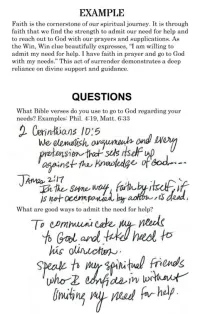 EXAMPLE
Faith is the cornerstone of our spiritual journey. It is through
faith that we find the strength to admit our need for help and
to reach out to God with our prayers and supplications. As
the Win, Win else beautifully expresses, "I am willing to
admit my need for help. I have faith in prayer and go to God
with my needs." This act of surrender demonstrates a deep
reliance on divine support and guidance.
QUESTIONS
What Bible verses do you use to go to God regarding your
needs? Examples: Phil. 4:19, Matt. 6:33
2 Corinthians 10:5
We demolish arguments and every
pretension that sets itself up
against the knowledge of God----
James 2:17
In the same way, faith by itself, if
is not accompanied by action, is dead.
What are good ways to admit the need for help?
To communicate my needs
to God and take heed to
his direction.
Speak to my spiritual friends
who I confide in without
limiting my need for help.